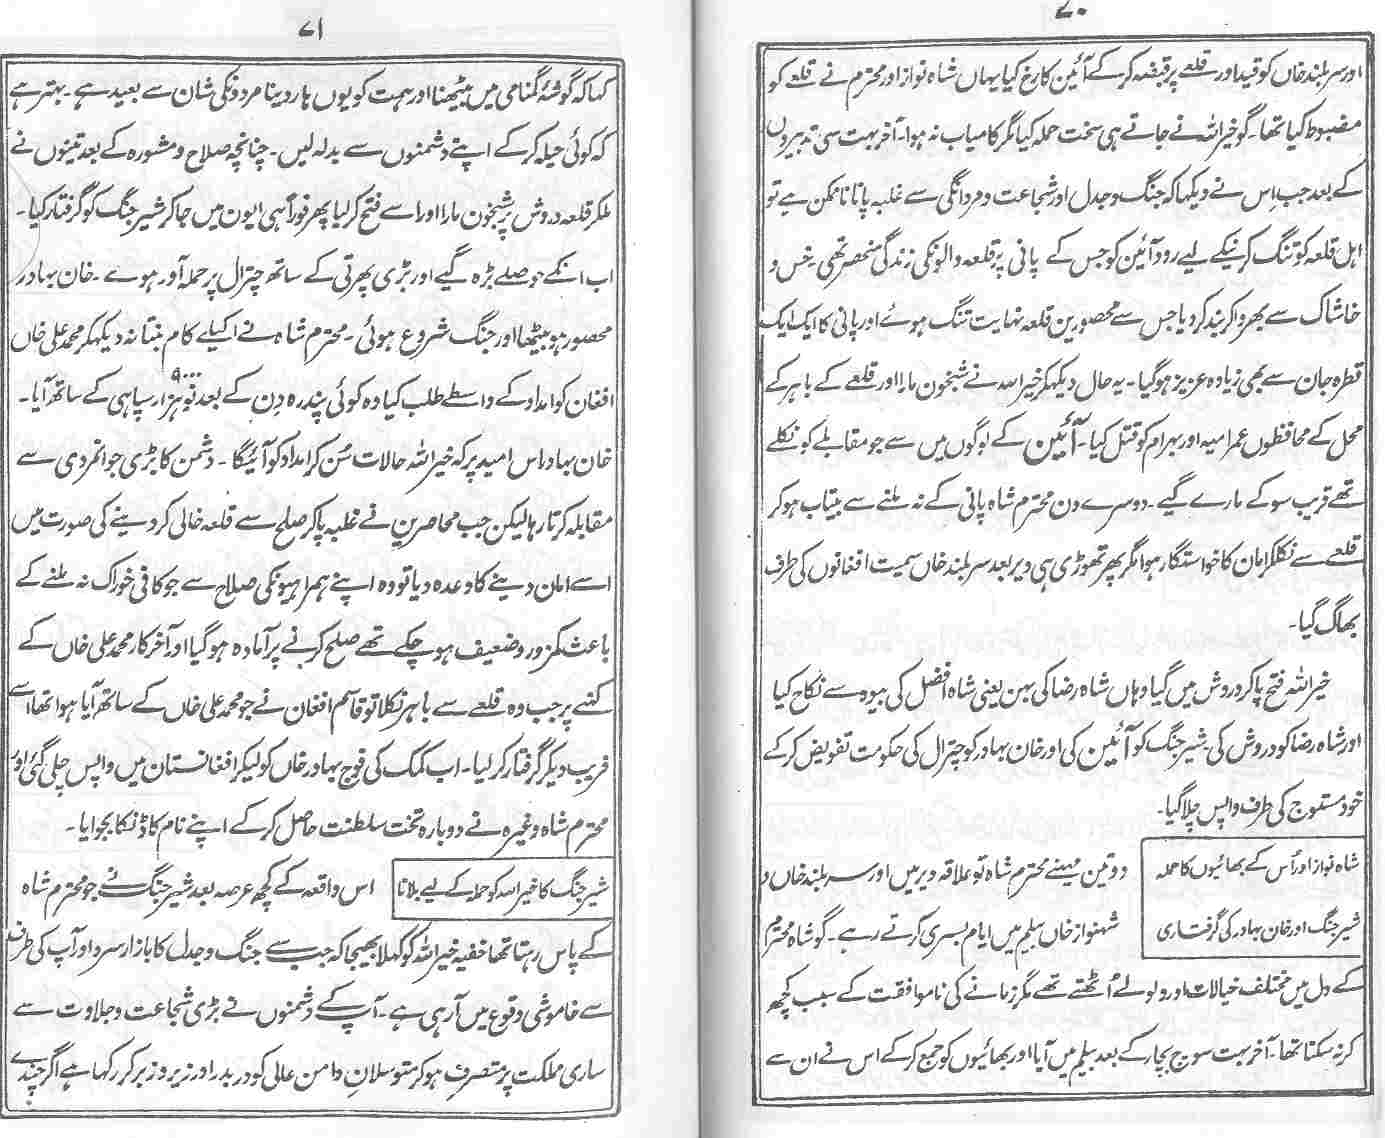 ۷۰
اور سر بلند خاں کو قید اور قلعے پر قبضہ کر کے آئین کا رخ کیا یہاں شاہ نواز اور محترم نے قلعے کو
مضبوط کیا تھا۔ گو خیراللہ نے جاتے ہی سخت حملہ کیا مگر کامیاب نہ ہوا۔ آخر بہت سی تدبیروں
کے بعد جب اس نے دیکہا کہ جنگ و جدل اور شجاعت و مردانگی سے غلبہ پانا ناممکن ہے تو
اہل قلعہ کو تنگ کرنیکے لیے رود آئین کو جس کے پانی پر قلعہ والونکی زندگی منحصر تھی خس و
خاشاک سے بھروا کر بند کر دیا جس سے محصورین قلعہ نہایت تنگ ہوے اور پانی کا ایک ایک
قطرہ جان سے بھی زیادہ عزیز ہوگیا۔ یہ حال دیکہکر خیراللہ نے شبخون مارا اور قلعے کے باہر کے
محل کے محافظوں عمرا میہ اور بہرام کو قتل کیا۔ آئین کے لوگوں میں سے جو مقابلے کو نکلے
تھے قریب سو کے مارے گیے۔ دوسرے دن محترم شاہ پانی کے نہ ملنے سے بیتاب ہو کر
قلعے سے نکلکر امان کا خواستگار ہوا مگر پھر تھوڑی ہی دیر بعد سر بلند خاں سمیت افغانوں کی طرف
بھاگ گیا۔
خیراللہ فتح پا کر دروش میں گیا وہاں شاہ رضا کی بہن یعنی شاہ افضل کی بیوہ سے نکاح کیا
اور شاہ رضا کو دروش کی۔ شیر جنگ کو آئین کی اور خان بہادر کو چترال کی حکومت تفویض کر کے
خود مستوج کی طرف واپس چلا گیا۔
شاہ نواز اور اُس کے بھائیوں کا حملہ
شیر جنگ اور خان بہادر کی گرفتاری
دو تین مہینے محترم شاہ تو علاقہ دیر میں اور سر بلند خاں و
شہنواز خاں بیلم میں ایام بسری کرتے رہے۔ گو شاہ محترم
کے دل میں مختلف خیالات اور ولولے اُٹھتے تھے مگر زمانے کی ناموافقت کے سبب کچھ
کر نہ سکتا تھا۔ آخر بہت سوچ بچار کے بعد بیلم میں آیا اور بھائیوں کو جمع کر کے اس نے ان سے
۷۱
کہا کہ گوشۂ گمنامی میں بیٹھنا اور ہمت کو یوں ہار دینا مردونکی شان سے بعید ہے۔ بہتر ہے
کہ کوئی حیلہ کر کے اپنے دشمنوں سے بدلہ لیں۔ چنانچہ صلاح و مشورہ کے بعد تینوں نے
ملکر قلعہ دروش پر شبخون مارا اور اسے فتح کر لیا پھر فوراً ہی ایون میں جا کر شیر جنگ کو گرفتار کیا۔
اب انکے حوصلے بڑہ گیے اور بڑی پھرتی کے ساتھ چترال پر حملہ آور ہوے۔ خان بہادر
محصور ہو بیٹھا اور جنگ شروع ہوئی۔ محترم شاہ نے اکیلے کام بنتا نہ دیکہکر محمد علی خاں
افغان کو امداد کے واسطے طلب کیا وہ کوئی پندرہ دن کے بعد نو ہزار ۹۰۰۰ سپاہی کے ساتھ آیا۔
خان بہادر اس امید پر کہ خیراللہ حالات سُن کر امداد کو آئیگا۔ دشمن کا بڑی جوانمردی سے
مقابلہ کرتا رہا لیکن جب محاصرین نے غلبہ پا کر صلح سے قلعہ خالی کر دینے کی صورت میں
اسے امان دینے کا وعدہ دیا تو وہ اپنے ہمراہیونکی صلاح سے جو کافی خوراک نہ ملنے کے
باعث کمزور و ضعیف ہو چکے تھے صلح کرنے پر آمادہ ہو گیا اور آخر کار محمد علی خاں کے
کہنے پر جب وہ قلعے سے باہر نکلا تو قاسم افغان نے جو محمد علی خاں کے ساتھ آیا ہوا تھا اسے
فریب دیکر گرفتار کر لیا۔ اب کمک کی فوج بہادر خاں کو لیکر افغانستان میں واپس چلی گئی اور
محترم شاہ وغیرہ نے دوبارہ تخت سلطنت حاصل کر کے اپنے نام کا ڈنکا بجوایا۔
شیر جنگ کا خیراللہ کو حملہ کے لیے بلانا
اس واقعہ کے کچھ عرصہ بعد شیر جنگ نے جو محترم شاہ
کے پاس رہتا تھا خفیہ خیراللہ کو کہلا بھیجا کہ جب سے جنگ و جدل کا بازار سرد اور آپ کی طرف
سے خاموشی وقوع میں آ رہی ہے۔ آپ کے دشمنوں نے بڑی شجاعت و جلاوت سے
ساری مملکت پر متصرف ہو کر متوسلانِ دامن عالی کو دربدر اور زیر و زبر کر رکہا ہے اگر چندے